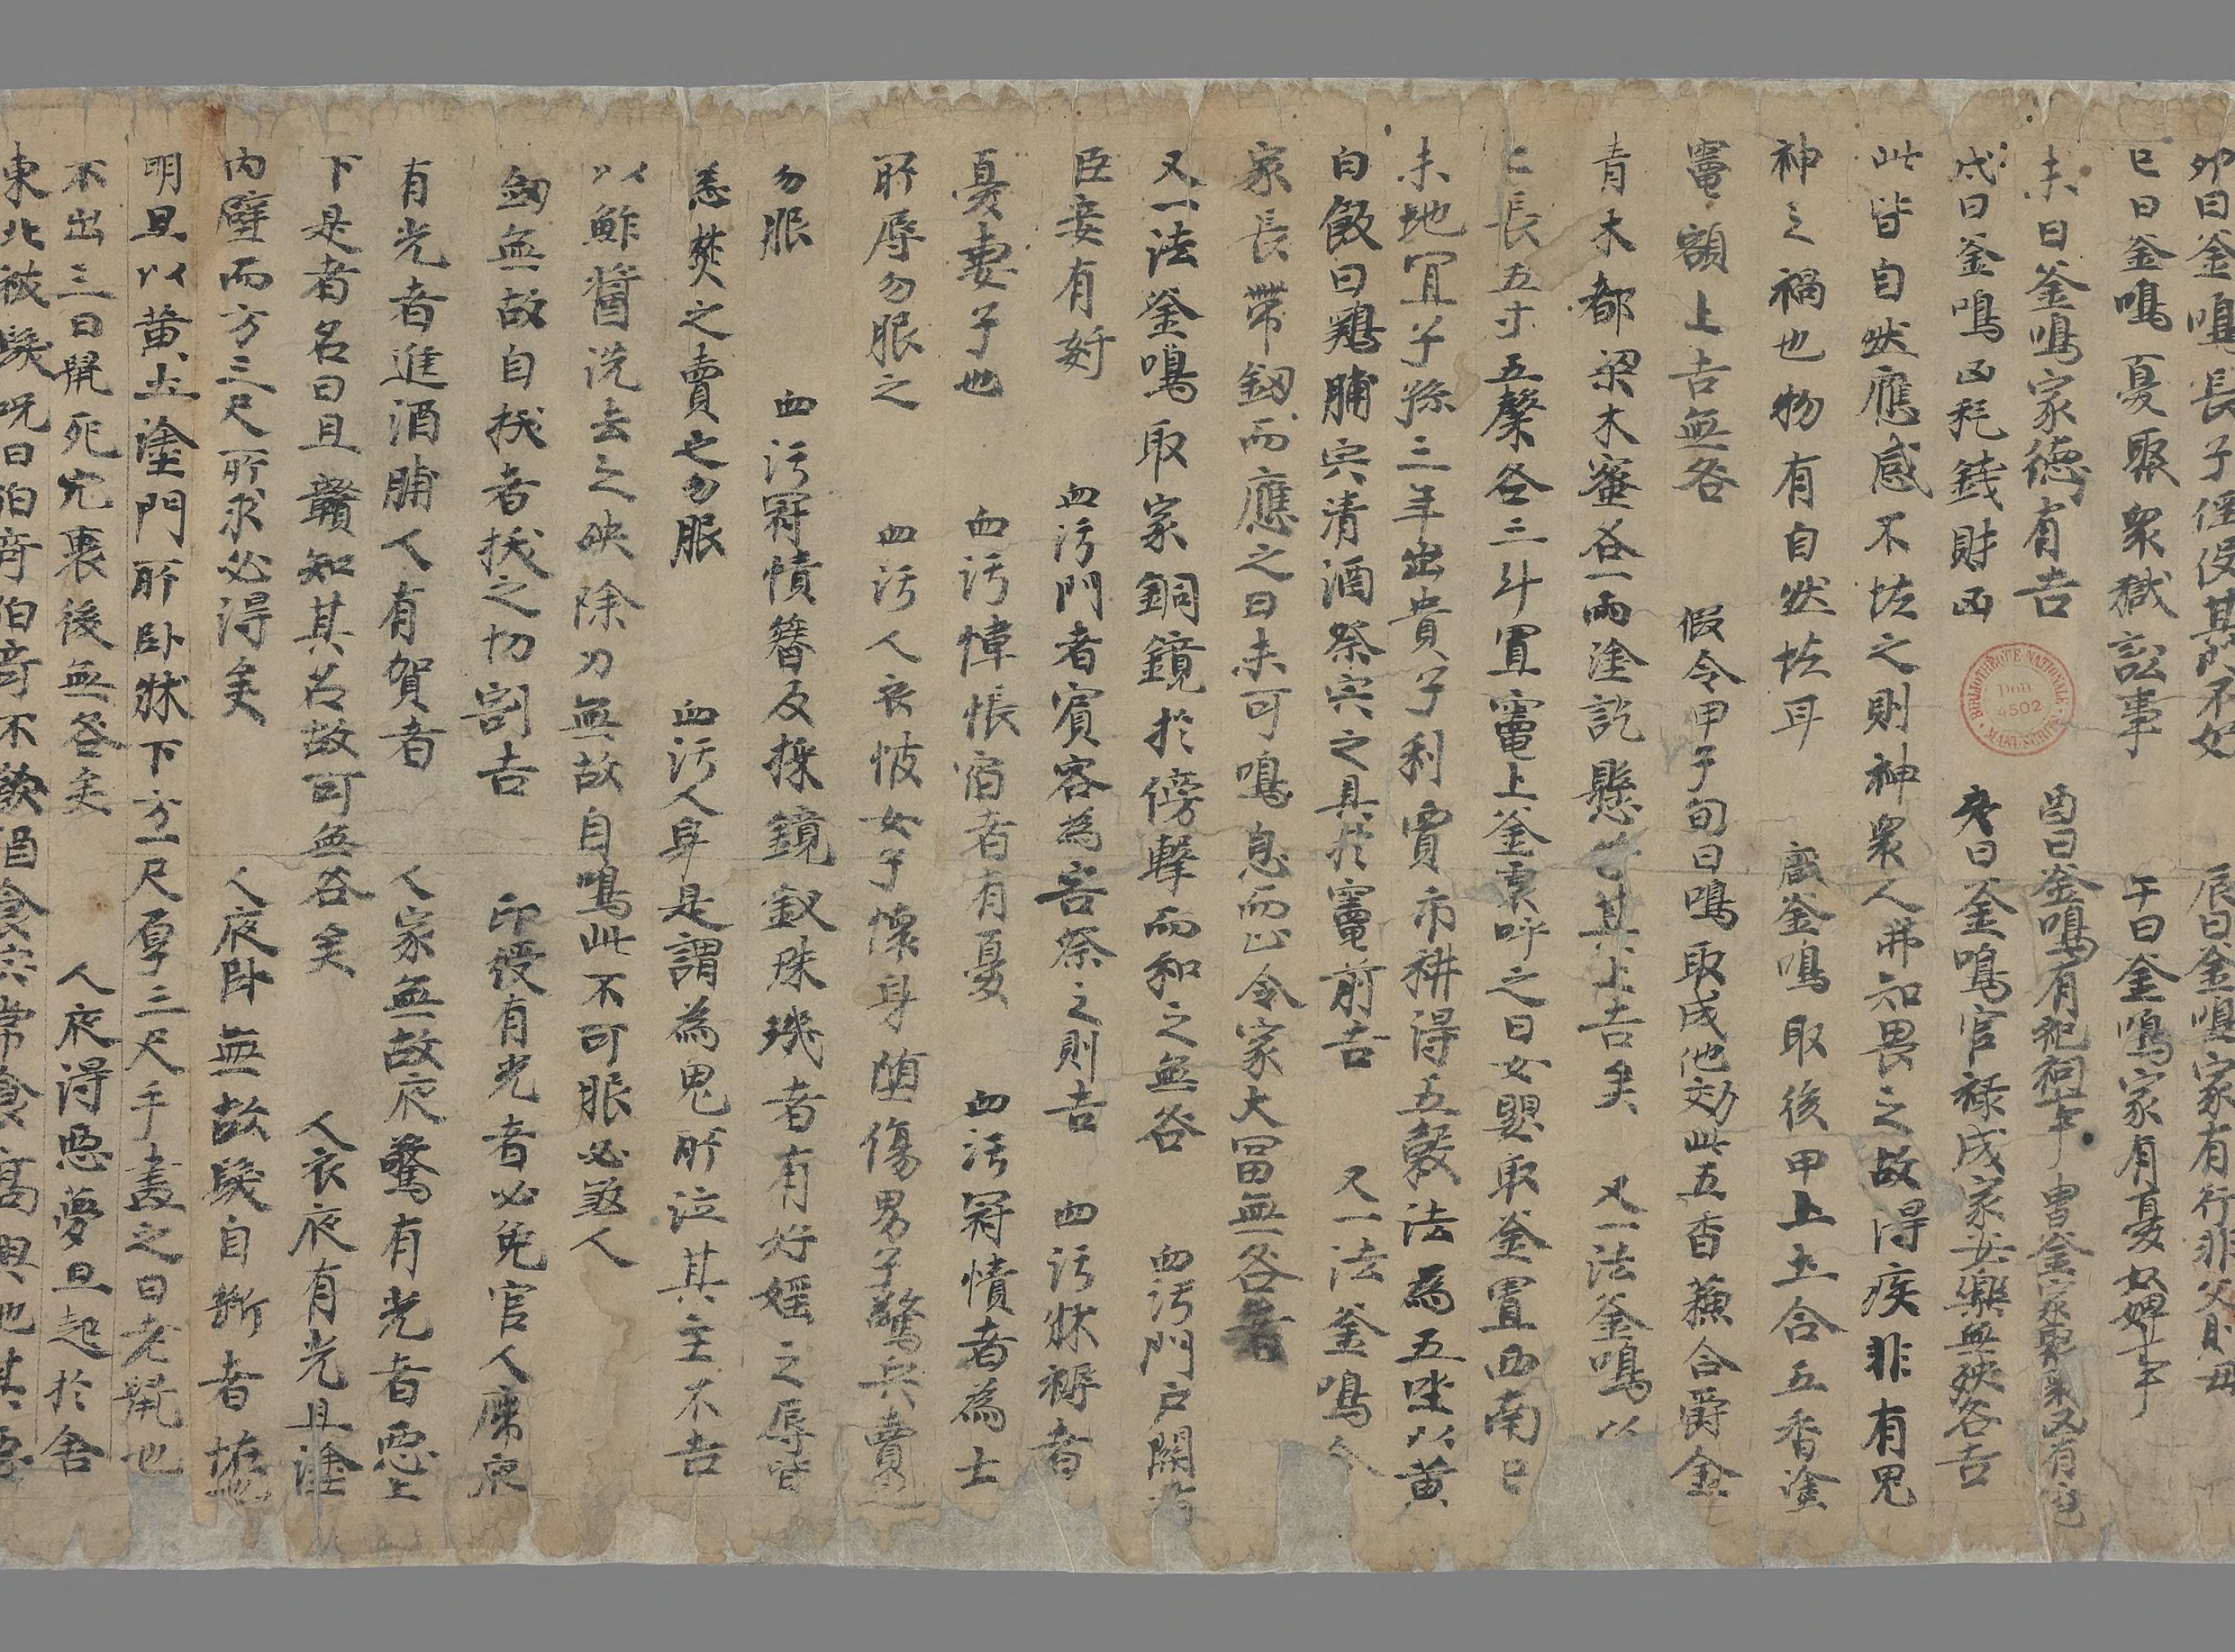 卯日釜鳴長子經役其門不如 辰日釜鳴家有行非父則母
巳日釜鳴憂聚衆獄訟事 午日釜鳴家有憂奴婢事
未日釜鳴家德有吉 酉日釜鳴有犯祠事
戌日釜鳴凶耗錢財凶 亥日釜鳴官祿成家安樂無殃咎吉
此皆自然應感不怪之則神衆人弗知畏之故得疾非有鬼
神之禍也物有自然怪耳 厭釜鳴取後甲上土合五香塗
竈額上吉無咎 假令甲子旬日鳴取戌他効此五香蘓合爵金
青木都梁木蜜各一兩塗訖懸 其上吉矣 又一法釜鳴以
上長五寸五榖各三斗置竈上釜裏呼之曰女嬰取釜置西南
未地宜子孫三年出貴子利賈市耕得五穀法為五坐以黃
白飯曰鷄脯宍清酒祭宍之具於竈前吉 又一法釜鳴令
家長帶釼而應之曰未可鳴息而止令家大富無咎
又一法釜鳴取家銅鏡於傍擊而和之無咎 血污門戶關
臣妾有奸 血污門者賓客為害祭之則吉 血污牀褥者
憂妻子也 血污幃帳宿者有憂 血污冠幘者為士
所辱勿服之 血污人衣帔女子懷身墮傷男子驚兵賣
勿服 血污冠幘簪及探鏡釵珠璣者有奸婬之辱皆
恙焚之賣之勿服 血污人身是謂為鬼所泣其主不吉
以鮓醬洗去之殃除刀無故自鳴此不可服必煞人
釼無故自拔者拔之切割吉 印綬有光者必免官人席夜
有光者進酒脯人有賀者 人家無故夜驚有光者惡上
下是者名曰且贛知其名故可無咎矣 人衣夜有光且塗
內壁而方三尺所求必得矣 人夜卧無故髮自斷者
明旦以黃土塗門所卧牀下方一尺厚三尺手畫之曰老鼠也
不出三日鼠死穴裏後無咎矣 人夜得惡夢旦起於舍
東北被髮呪曰伯奇伯奇不飲酒食宍常食高興地其惡
BIBLIOTHÈQUE NATIONALE
Don
4502
MANUSCRITS